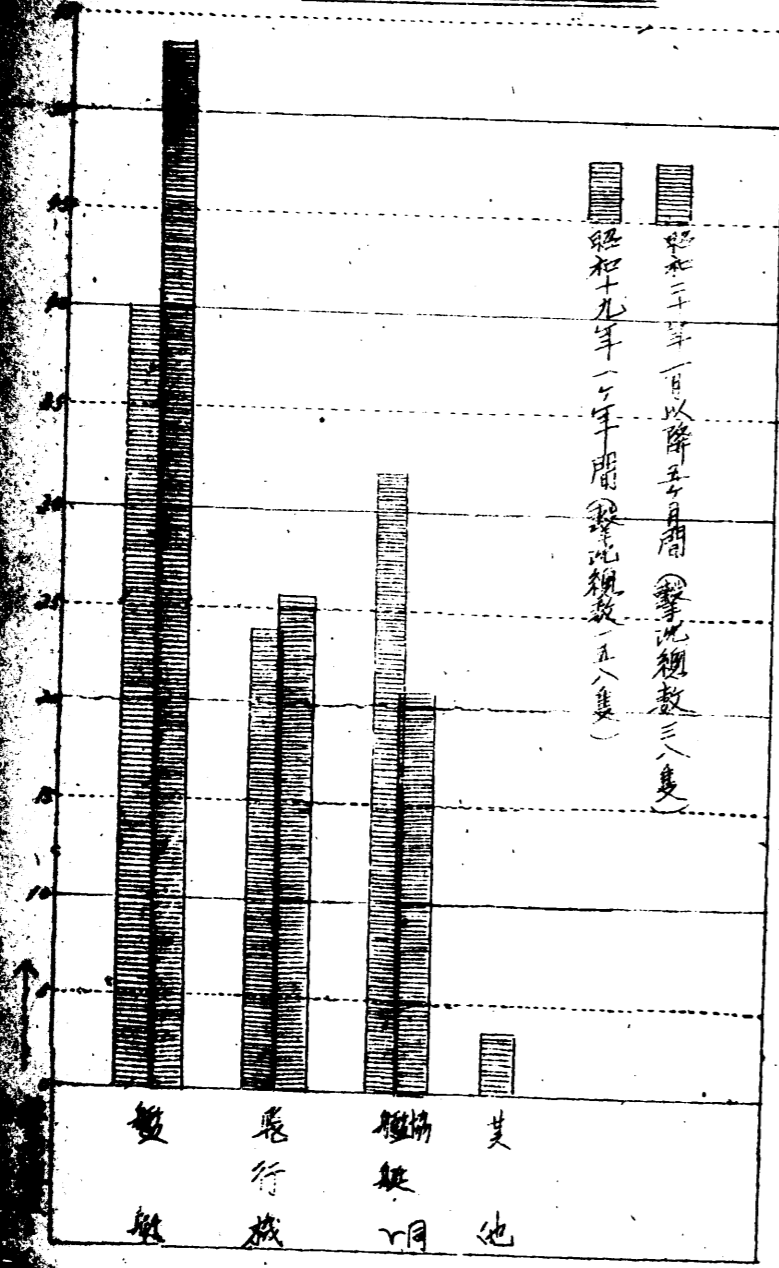 昭和二十年一月以降五ケ月間(撃沈總数三八隻)
昭和十九年一ケ年間(撃沈總数一五八隻)
40
35
30
25
20
15
10
5
0
艦艇
飛行機
艦艇協同
其他